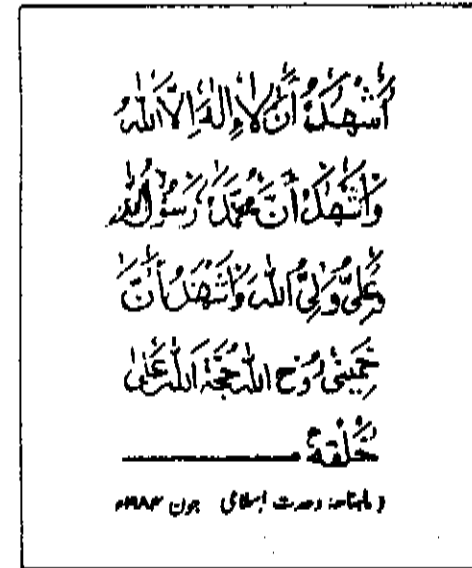 أَشْهَدُ أَنْ لَا إِلٰهَ إِلَّا اللّٰهُ
وَأَشْهَدُ أَنَّ مُحَمَّدًا رَسُوْلُ اللّٰهِ
وَعَلِيٌّ وَلِيُّ اللّٰهِ وَأَشْهَدُ أَنَّ
خُمَيْنِي رُوْحُ اللّٰهِ حُجَّةُ اللّٰهِ عَلٰى
خَلْقِهٖ
(ماہنامہ وحدت اسلامی جون ۱۹۸۴ء